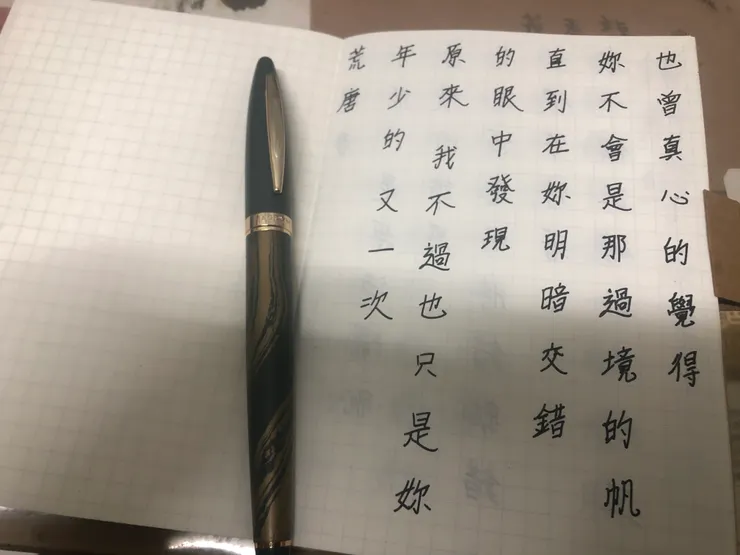 也曾真心的覺得
妳不會是那過境的帆
直到在妳明暗交錯
的眼中發現
原來我不過也只是妳
年少的又一次
荒唐